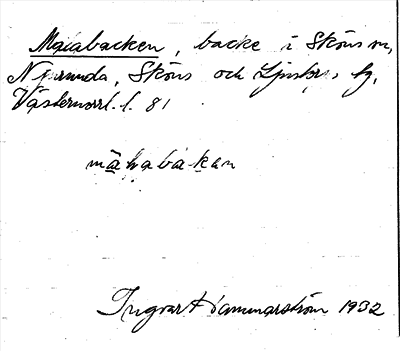 Maiabacken, backe i Sköns sn,
Njurunda, Sköns och Ljustorps tg,
Västernorrl. l. 81
mahabakan
Ingvar Hammarström 1932